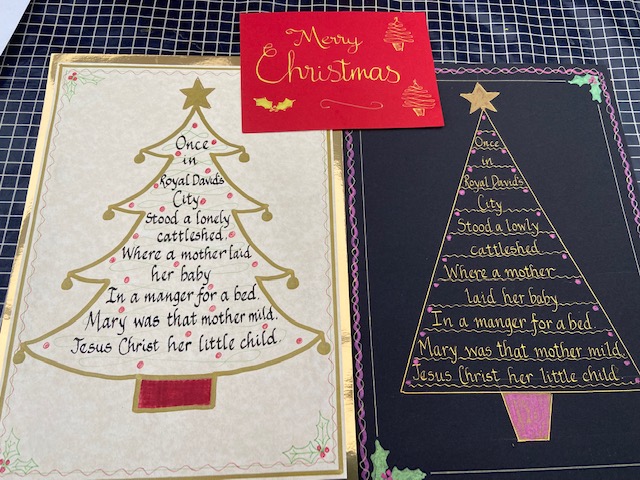 Merry
Christmas
Once
in
Royal David's
City
Stood a lonely
cattleshed,
Where a mother laid
her baby
In a manger for a bed.
Mary was that mother mild.
Jesus Christ her little child.
Once
in
Royal David's
City
Stood a lowly
cattleshed
Where a mother
laid her baby
In a manger for a bed.
Mary was that mother mild.
Jesus Christ her little child.